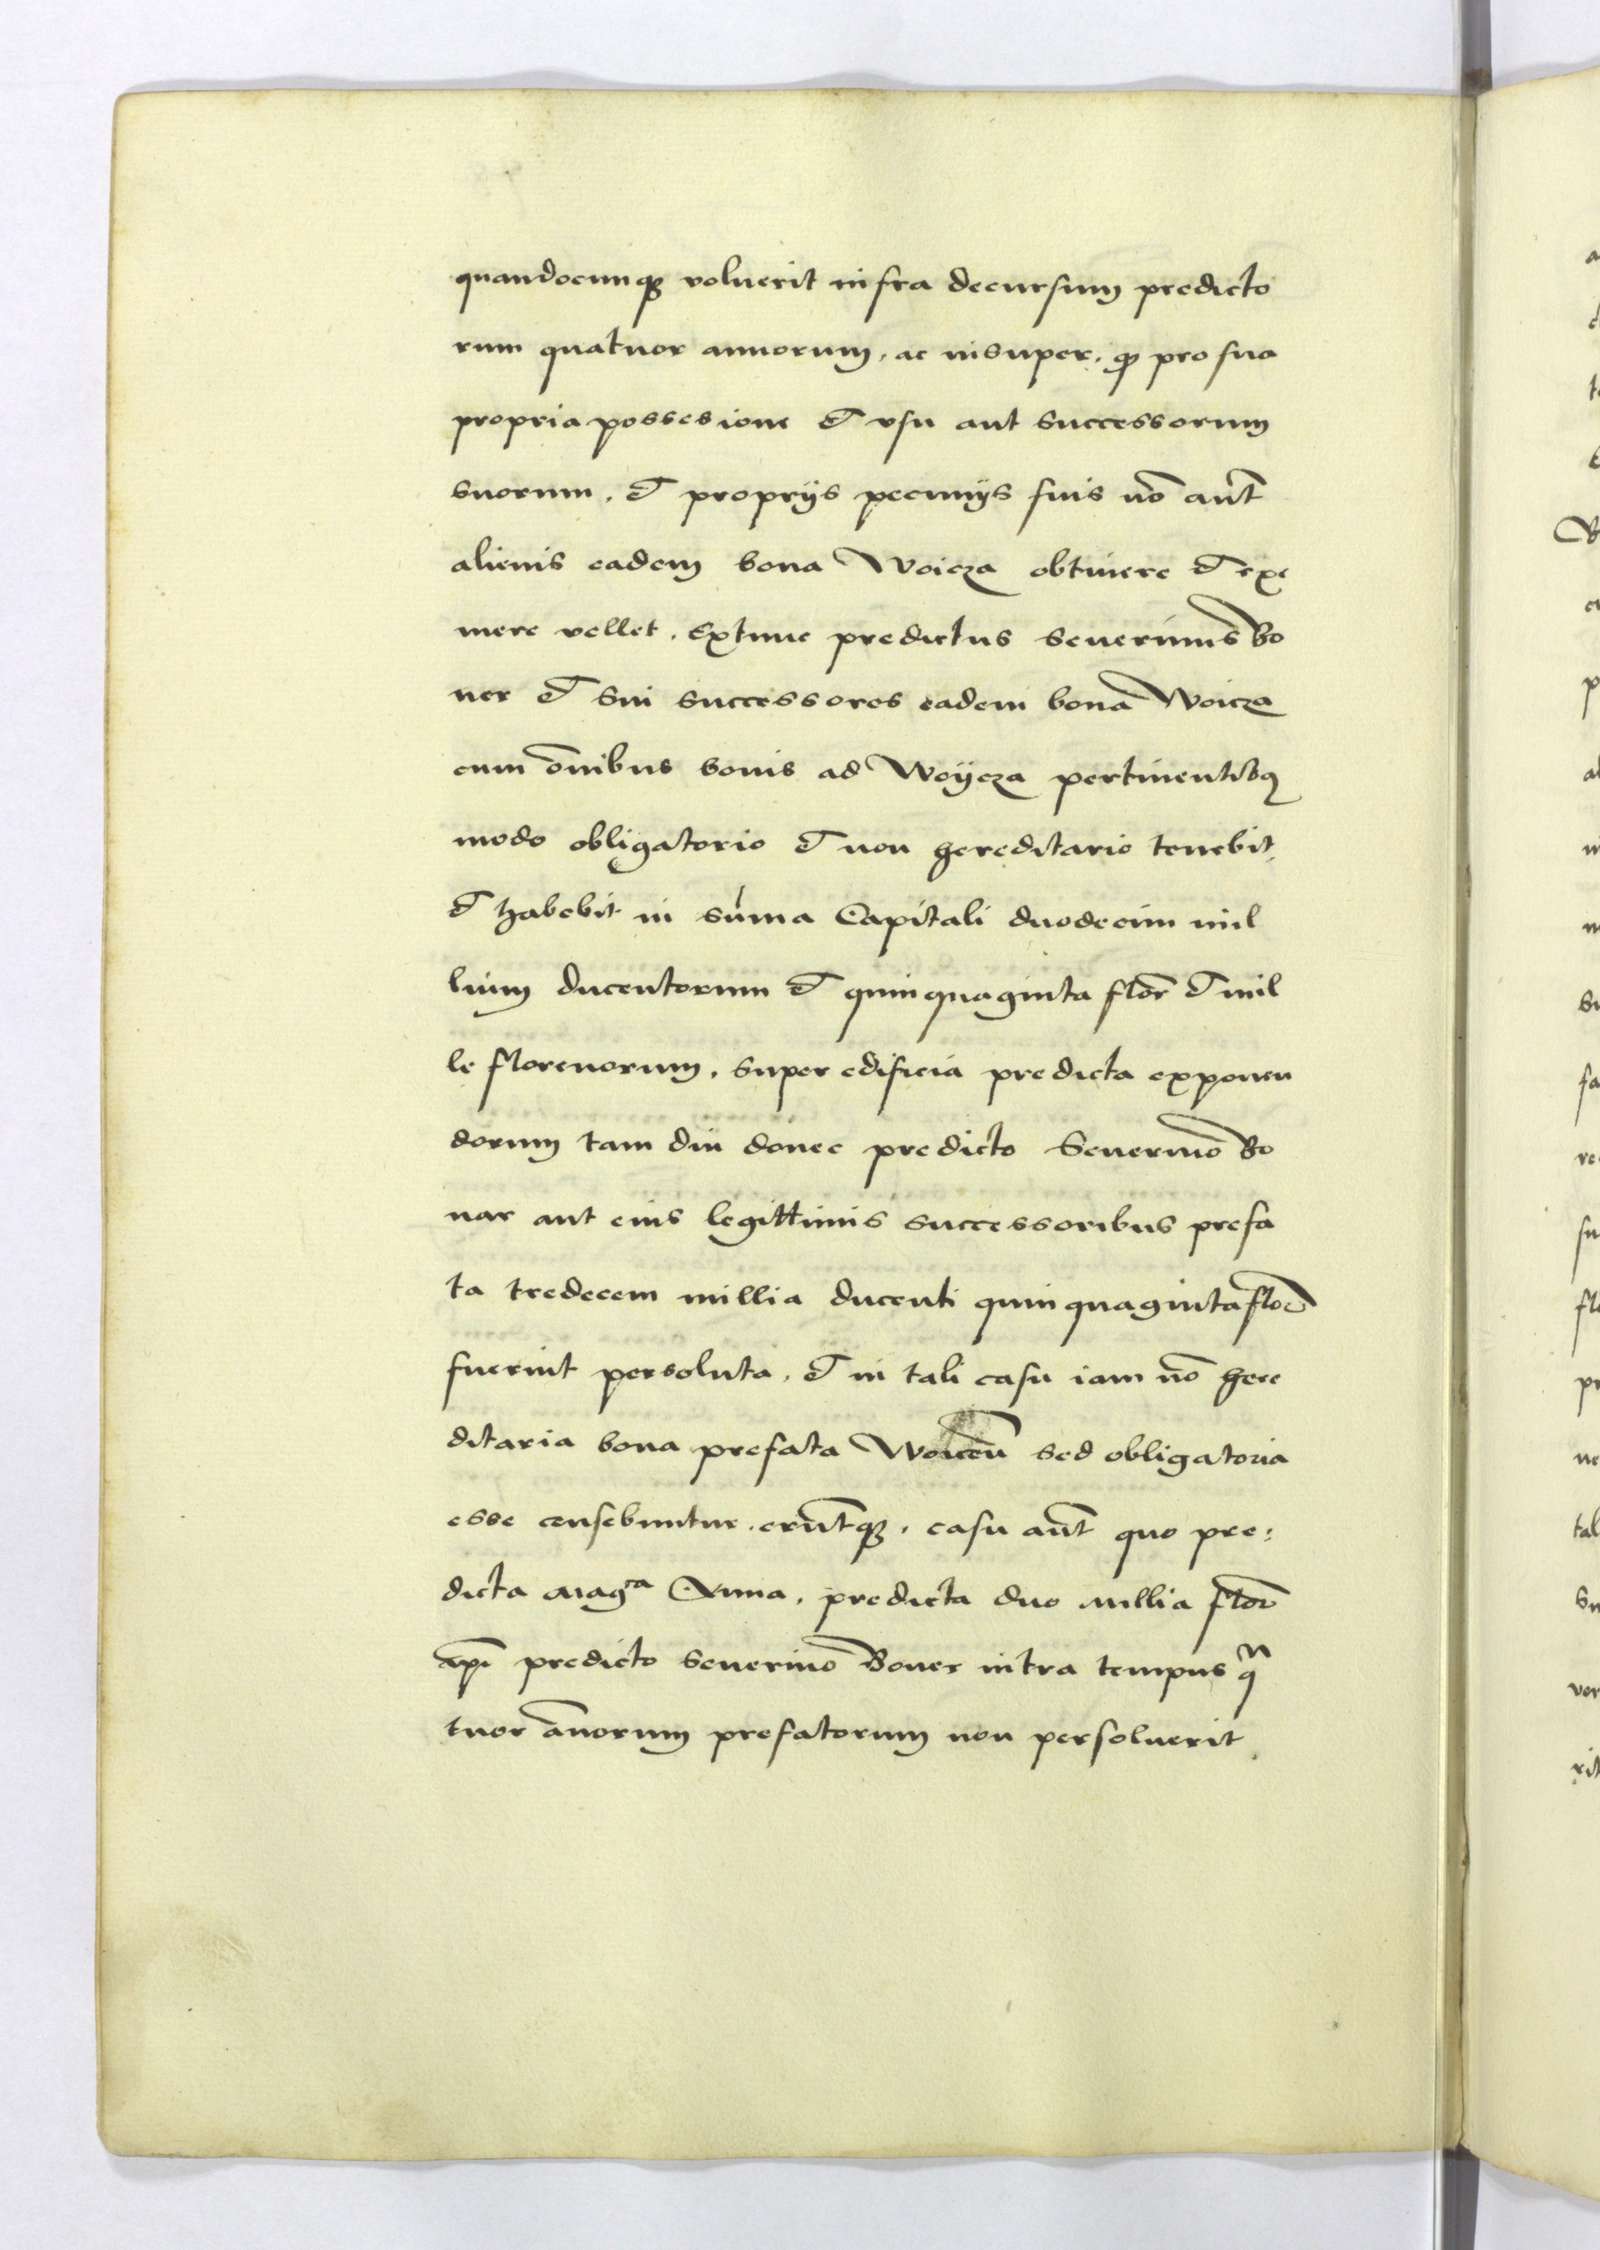 quandocunqꝫ voluerit infra decursum predicto
rum quatuor annorum, ac insuper, qꝫ pro sua
propria possesione et vsu aut successorum
suorum, et proprijs pecunijs suis nō aūt
alienis eadem bona Woicza obtinere et exe
mere vellet. Extunc predictus Seuerinus Bo
ner et sui successores eadem bona Woicza
cum ōnibus bonis ad Woÿcza pertinentibꝫ
modo obligatorio et non hereditario tenebit,
et habebit in sūma Capitali duodecim mil
lium ducentorum et quinquaginta flor̄ et mil
le florenorum, super edificia predicta exponen
dorum tam diu donec predicto Seuerino Bo
nar aut eius legittimis successoribus prefa
ta tredecem millia ducenti quinquaginta flor̄
fuerint persoluta, et in tali casu iam nō here
ditaria bona prefata Woiceñ sed obligatoria
esse censebuntur, erūtqꝫ, casu aūt quo pre:
dicta Magᶜᵃ Anna, predicta duo millia flor̄
predicto Seuerino Boner intra tempus qᵃ
tuor ānorum prefatorum non persoluerit